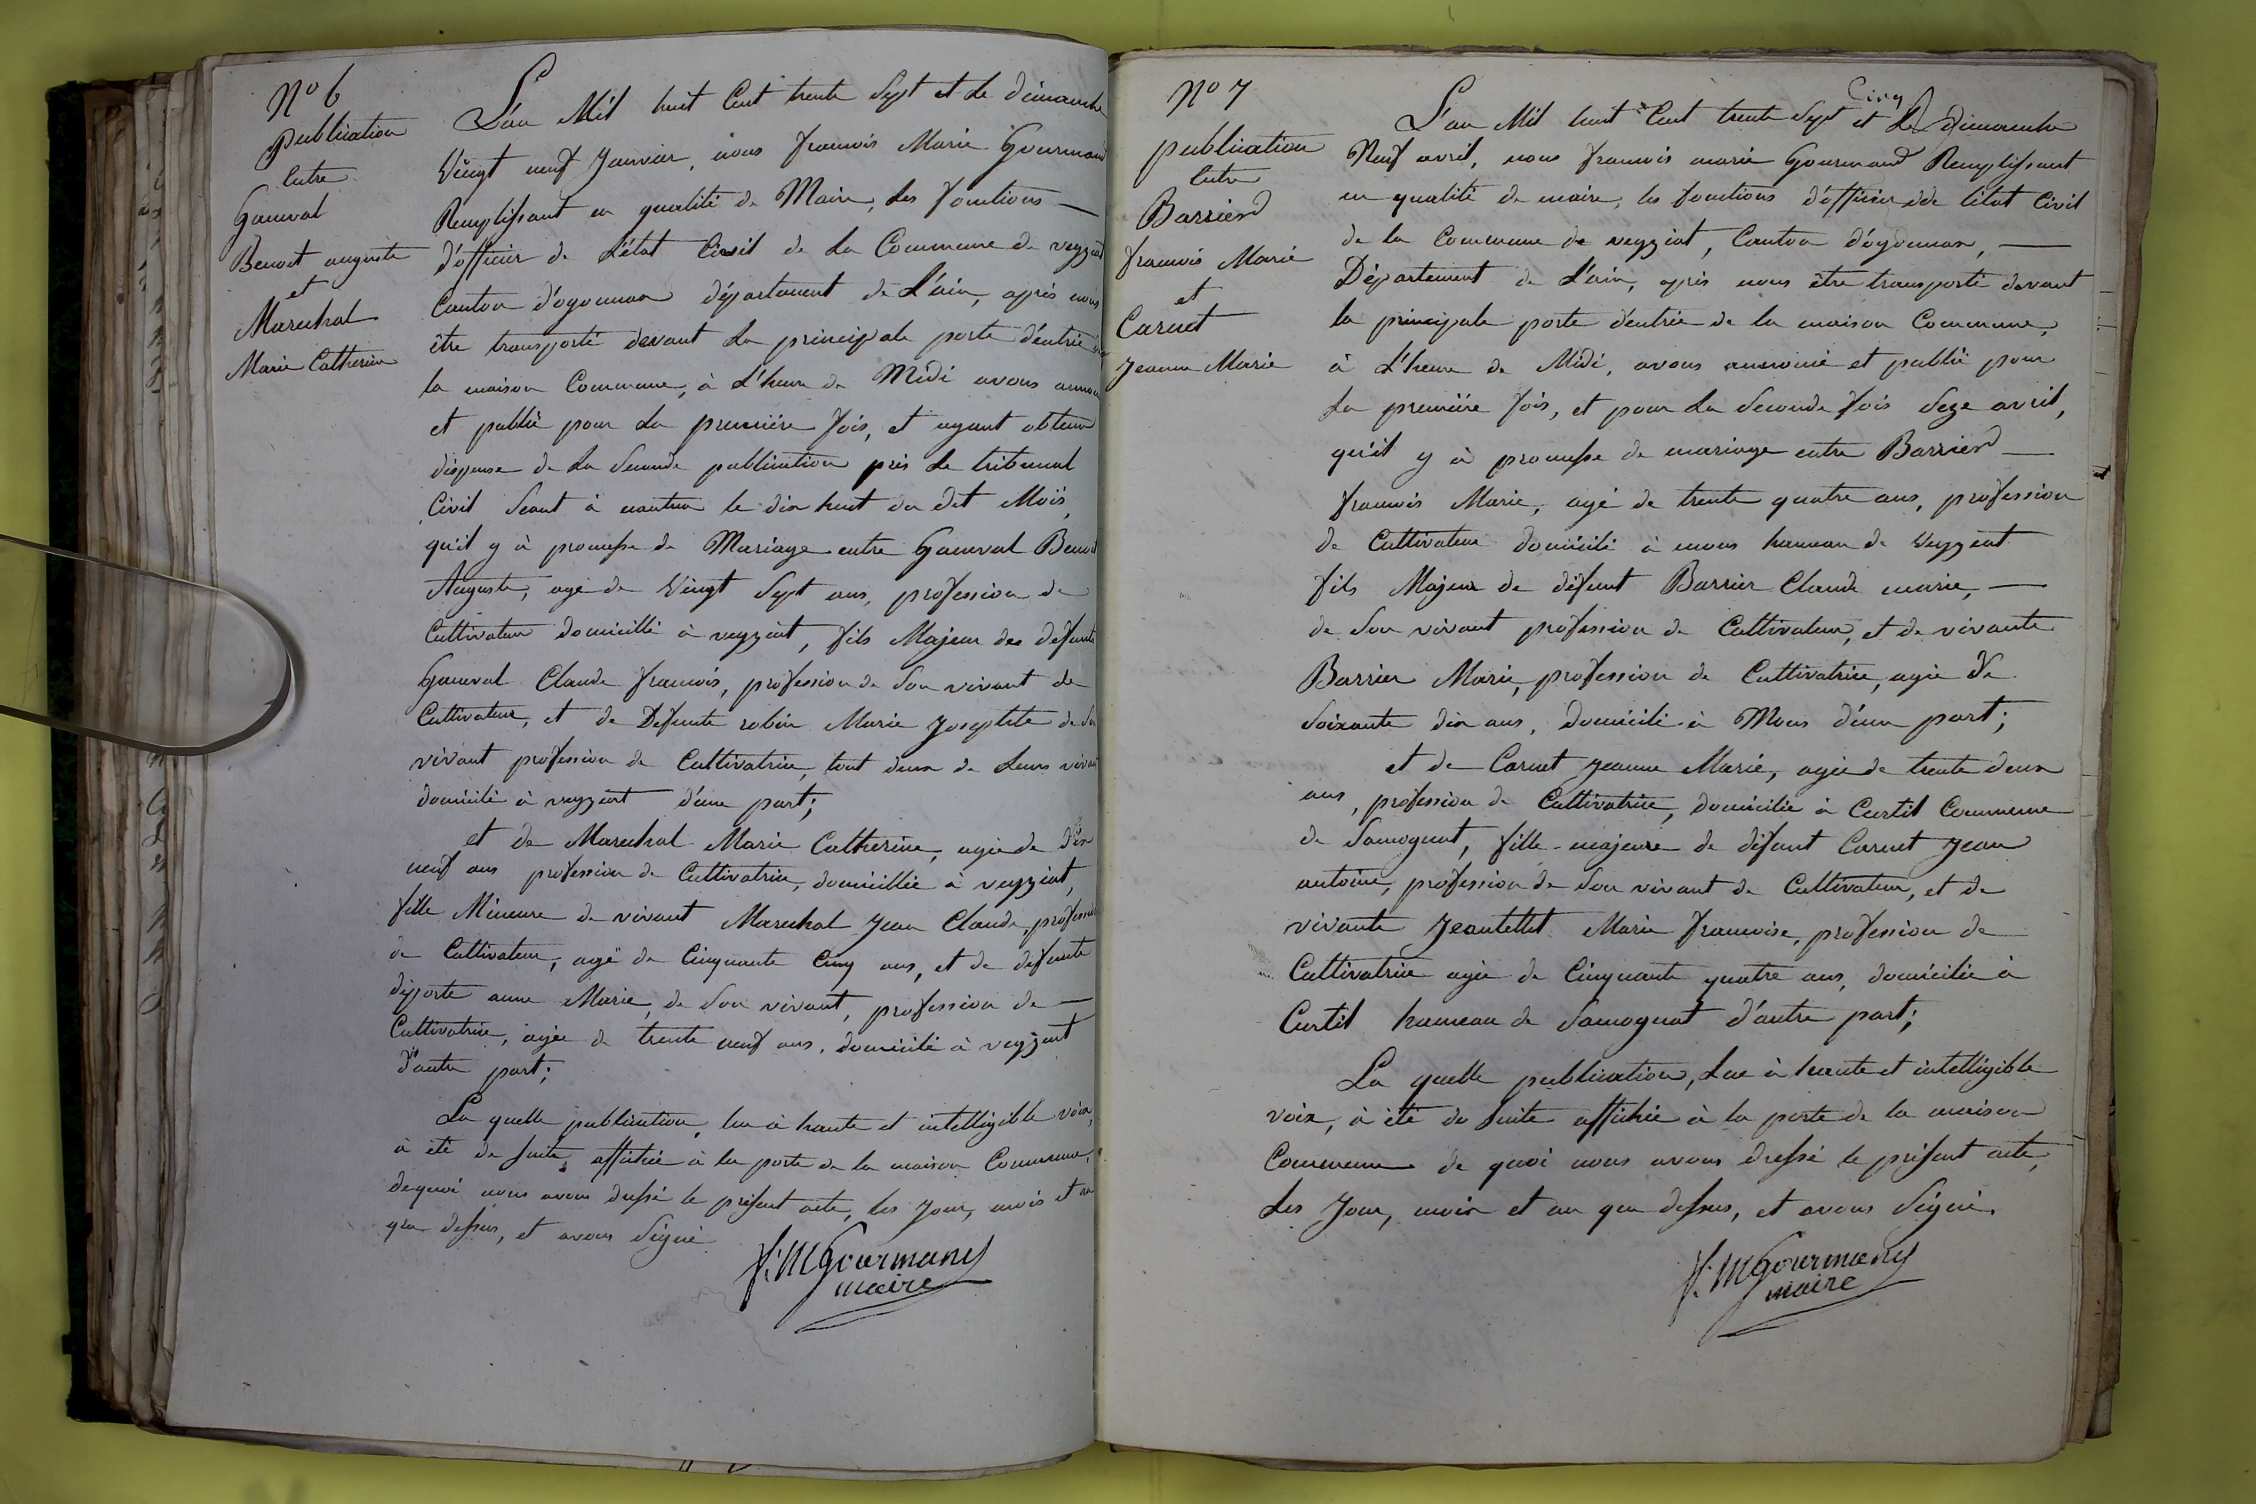 N° 6
publication
Entre
Gauvral
Benoit auguste
et
Marechal
Marie Catherine
L'an Mil huit Cent trente Sept et Le dimanche
Vingt neuf Janvier, nous francois Marie Gourmand
Remplissant en qualité de Maire, Les fonctions —
d'officier de L'état Civil de La Commune de veyziat
Canton d'oyonnax département de L'ain, après nous
être transporté devant La principale porte d'entrée de
la maison Commune, à L'heure de Midi avons annoncé
et publié pour La première fois, et ayant obtenu
dispense de La Seconde publication près Le tribunal
Civil Séant à nantua le dix huit du dit Mois,
qu'il y à promesse de Mariage entre Gauvral Benoit
Auguste, agé de Vingt Sept ans, profession de
Cultivateur domicillié à veyziat, fils Majeur des défunts
Gauvral Claude francois, profession de Son vivant de
Cultivateur, et de Défunte robin Marie Josephte de Son
vivant profession de Cultivatrice, tout deux de Leurs vivant
domicilié à veyziat d'une part;
et de Marechal Marie Catherine, agée de dix
neuf ans profession de Cultivatrice, domicilliée à veyziat,
fille Mineure de vivant Marechal Jean Claude, profession
de Cultivateur, agé de Cinquante Cinq ans, et de défunte
déporte anne Marie, de Son vivant, profession de —
Cultivatrice, agée de trente neuf ans, domicilié à veyziat
d'autre part;
La quelle publication, lue à haute et intelligible voix,
à été de suite affichée à la porte de la maison Commune,
de quoi nous avons dressé le présent acte, les Jour, mois et an
que dessus, et avons Signé
f. M Gourmand
maire
N° 7
publication
Entre
Barrier
francois Marie
et
Carnet
Jeanne Marie
Cinq
L'an Mil huit Cent trente Sept et Le dimanche
Neuf avril, nous francois marie Gourmand Remplissant
en qualité de maire, les fonctions d'officier de l'état Civil
de la Commune de veyziat, Canton d'oyonnax, —
Département de L'ain, après nous être transporté devant
la principale porte d'entrée de la maison Commune,
à L'heure de Midi, avons annoncé et publié pour
La première fois, et pour La Seconde fois Seze avril,
qu'il y à promesse de mariage entre Barrier —
francois Marie, agé de trente quatre ans, profession
de Cultivateur domicilié à mons hameau de Veyziat
fils Majeur de défunt Barrier Claude marie, —
de Son vivant profession de Cultivateur, et de vivante
Barrier Marie, profession de Cultivatrice, agée de
Soixante dix ans, domicilié à Mons d'une part;
et de Carnet Jeanne Marie, agée de trente deux
ans, profession de Cultivatrice, domicilée à Curtil Commune
de Samognat, fille majeure de défunt Carnet Jean
antoine, profession de Son vivant de Cultivateur, et de
vivante Jeantellet Marie francoise, profession de
Cultivatrice agée de Cinquante quatre ans, domicilée à
Curtil hameau de Samognat d'autre part;
La quelle publication, Lue à haute et intelligible
voix, à été de suite affichée à la porte de la maison
Commune de quoi nous avons dressé le présent acte,
Les Jour, mois et an que dessus, et avons Signé.
f. M Gourmand
maire